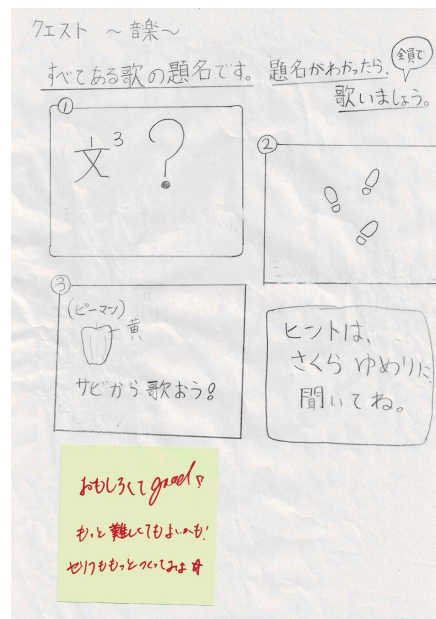 クエスト ～音楽～
すべてある歌の題名です。題名がわかったら、
全員で
歌いましょう。
①
文³ ?
②
③
(ピーマン)
黄
サビから歌おう!
ヒントは、
さくら ゆめりに
聞いてね。
おもしろくてgood!
もっと難しくてもよいかも!
セリフももっとつくってみよ